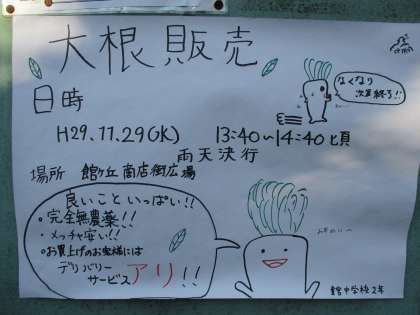 大根販売
日時
H29.11.29(水) 13:40〜14:40頃
雨天決行
場所 館ヶ丘商店街広場
なくなり
次第終了!!
良いこといっぱい!!
・完全無農薬!!
・メッチャ安い!!
・お買上げのお客様には
デリバリー
サービスアリ!!
館中学校2年